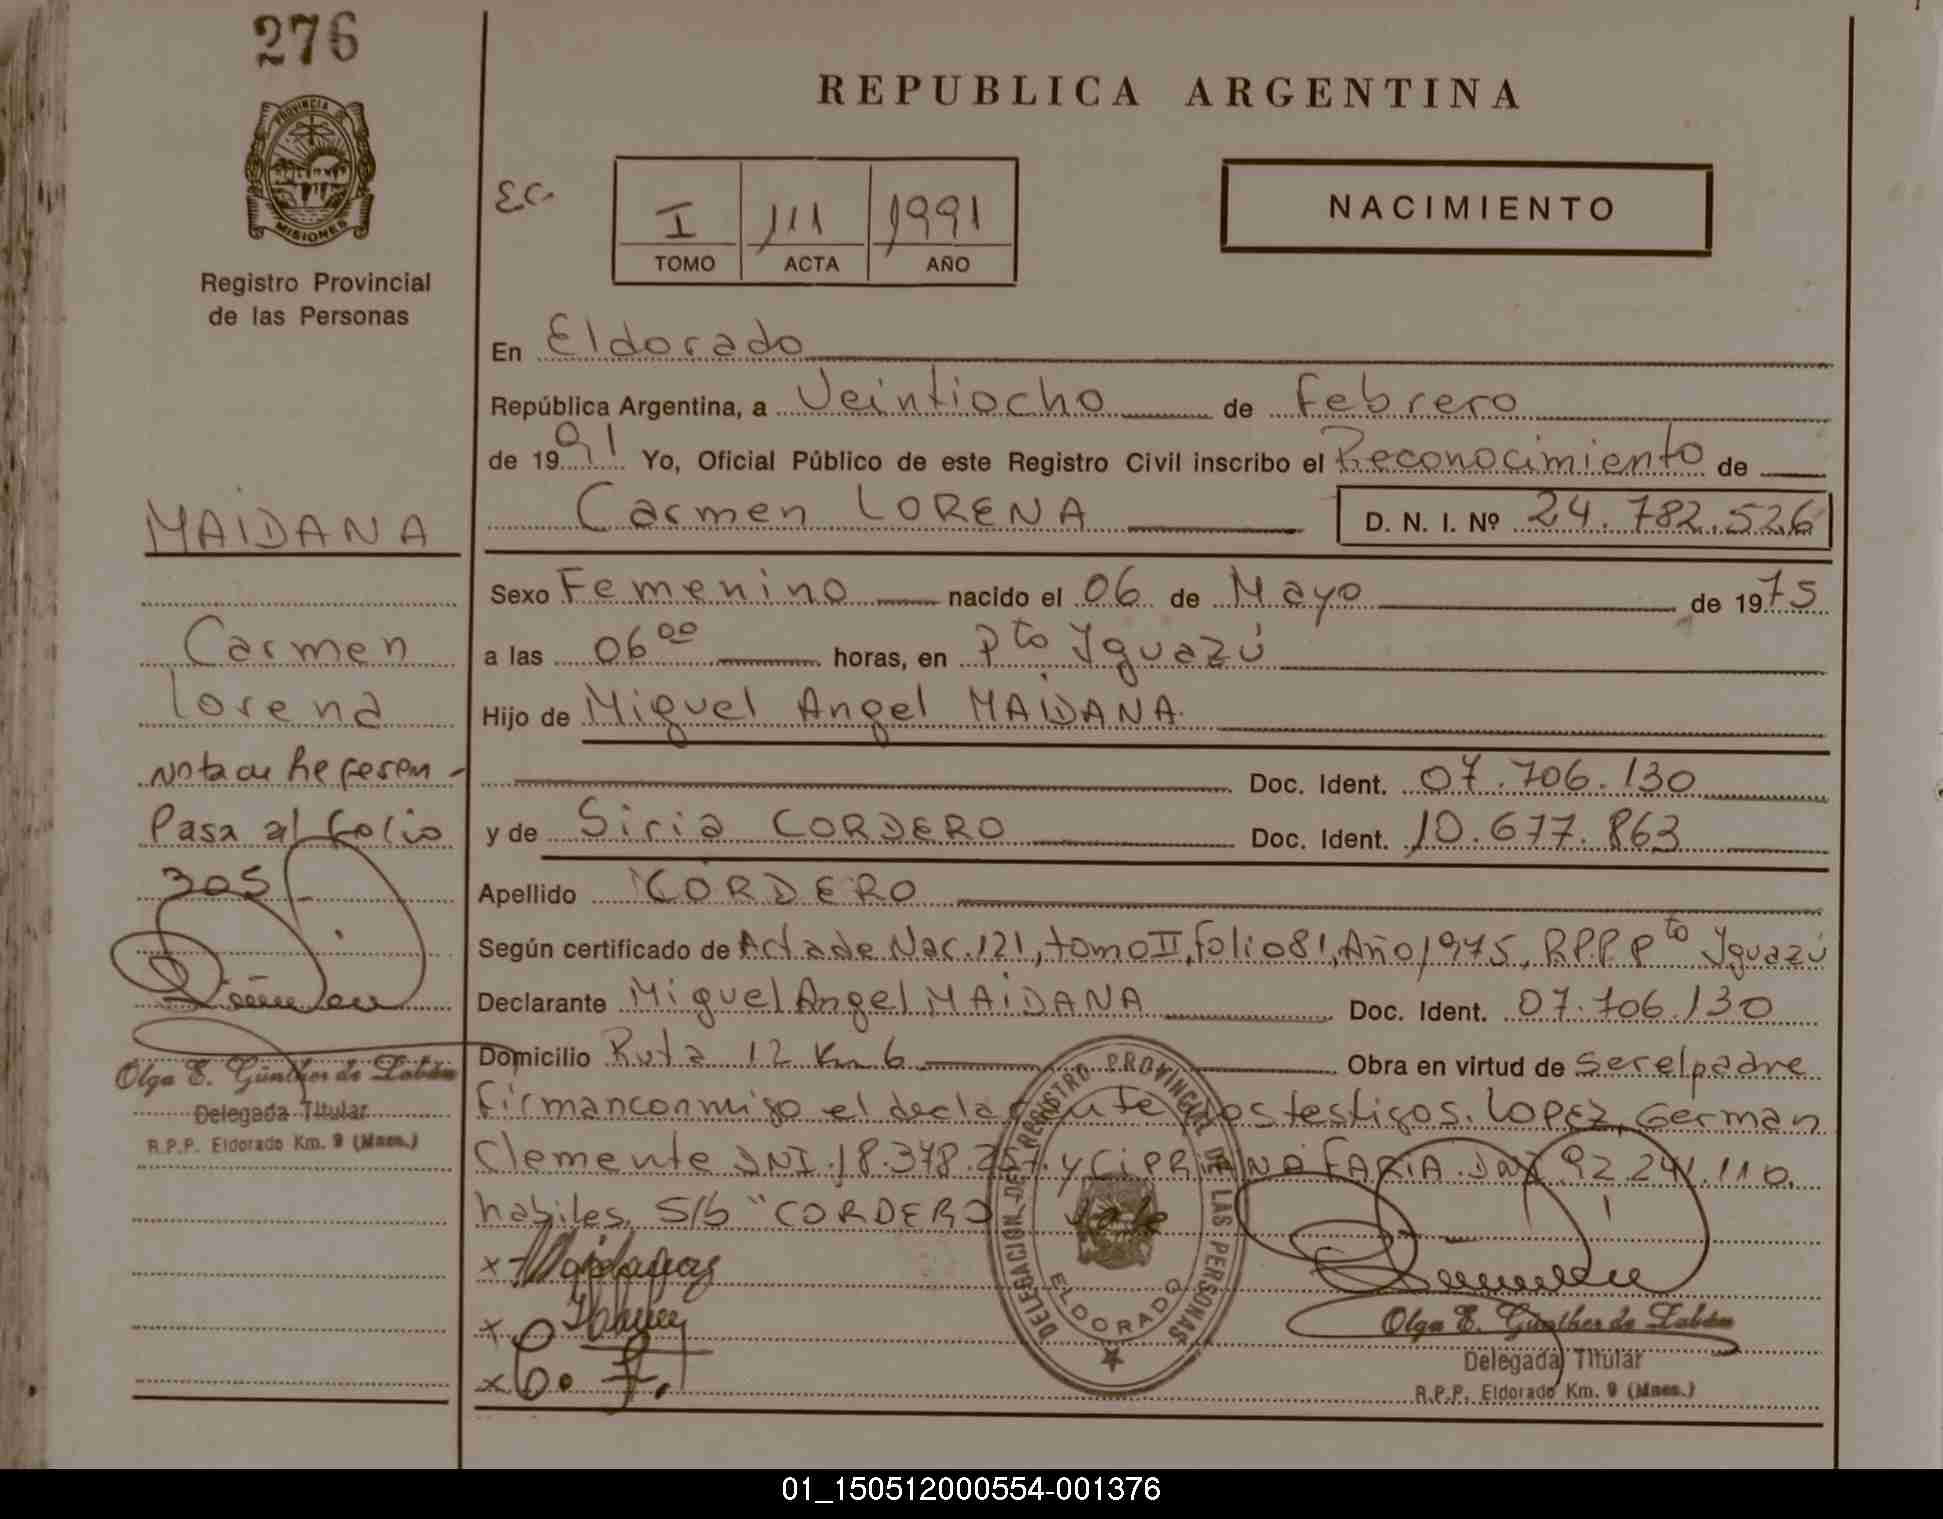 276
PROVINCIA DE
MISIONES
Registro Provincial
de las Personas
REPUBLICA ARGENTINA
I 111 1991
TOMO ACTA AÑO
NACIMIENTO
En Eldorado
República Argentina, a Veintiocho de Febrero
de 1991 Yo, Oficial Público de este Registro Civil inscribo el Reconocimiento de
Carmen LORENA D. N. I. Nº 24.782.526
Sexo Femenino nacido el 06 de Mayo de 1975
a las 06 00 horas, en Pto Iguazú
Hijo de Miguel Angel MAIDANA
Doc. Ident. 07.706.130
y de Siria CORDERO Doc. Ident. 10.677.863
Apellido CORDERO
Según certificado de Acta de Nac. 121, tomo II, folio 81, Año 1975, R.P.P. Pto Iguazú
Declarante Miguel Angel MAIDANA Doc. Ident. 07.706.130
Domicilio Ruta 12 Km 6 Obra en virtud de ser el padre
firman conmigo el declarante dos testigos. LOPEZ, German
Clemente DNI. 18.378. y CIPRIANO FARIA. DNI 92.241.110.
habiles. S/b "CORDERO vale
MAIDANA
Carmen
Lorena
Nota de Referen-
Pasa al folio
305
Olga E. Günther de Labán
Delegada Titular
R.P.P. Eldorado Km. 9 (Mnes.)
DELEGACION DEL REGISTRO PROVINCIAL DE LAS PERSONAS
ELDORADO
Olga E. Günther de Labán
Delegada Titular
R.P.P. Eldorado Km. 9 (Mnes.)
01_150512000554-001376